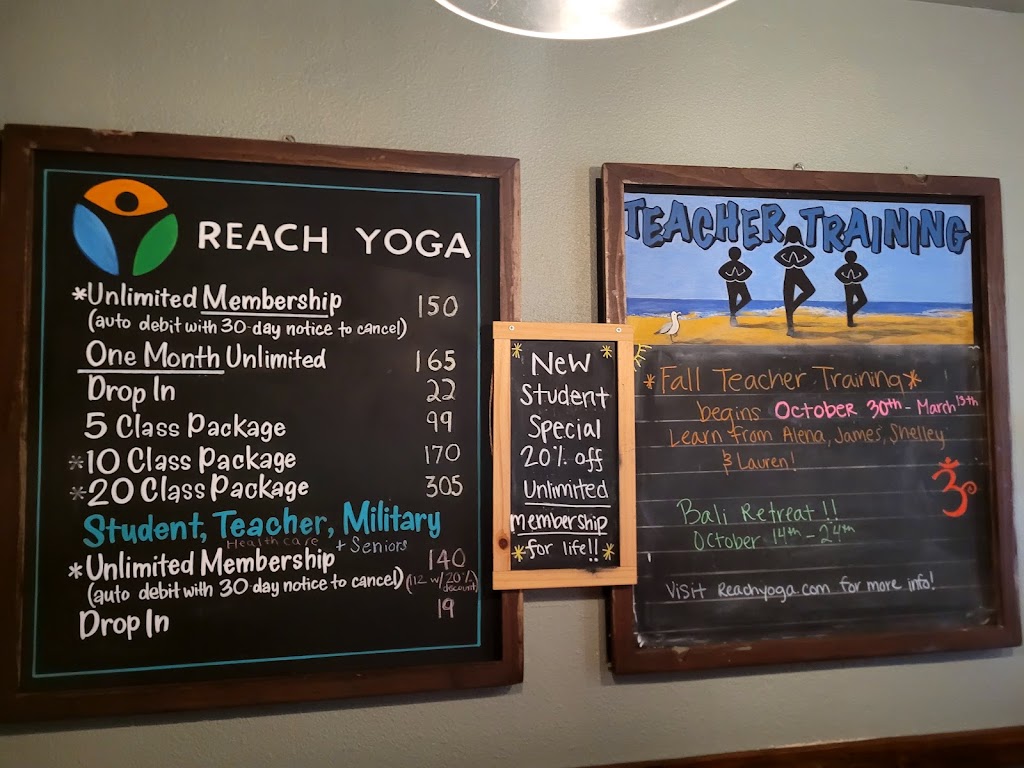 REACH YOGA
*Unlimited Membership 150
(auto debit with 30-day notice to cancel)
One Month Unlimited 165
Drop In 22
5 Class Package 99
*10 Class Package 170
*20 Class Package 305
Student, Teacher, Military
Healthcare + Seniors
*Unlimited Membership 140
(auto debit with 30 day notice to cancel) (112 w/ 20% discount)
Drop In 19
New
Student
Special
20% off
Unlimited
membership
for life!!
TEACHER TRAINING
*Fall Teacher Training*
begins October 30th - March 13th
Learn from Alena, James, Shelley
& Lauren!
Bali Retreat!!
October 14th - 24th
Visit Reachyoga.com for more info!
ॐ